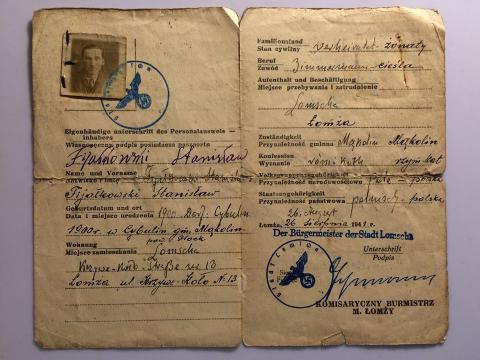 Eigenhändige unterschrift des Personalausweis —
inhabers
Własnoręczny podpis posiadacza paszportu
Fijałkowski Stanisław
Name und Vorname
Fijałkowski Stanisław
Geburtsdatum und ort
Data i miejsce urodzenia 1900 Dorf: Cybulin
1900 r. w Cybulin gm. Mąkolin
Wohnung pow. Płock
Miejsce zamieszkania Lomscha
Krzywe-Koło Straße nr 13
Łomża ul. Krzywe-Koło N. 13
Familienstand
Stan cywilny Verheiratet - żonaty
Beruf
Zawód Zimmermann - cieśla
Aufenthalt und Beschäftigung
Miejsce przebywania i zatrudnienie
Lomscha
Łomża
Zuständigkeit
Przynależność gminna Mąkolin Mąkolin
Konfession
Wyznanie rzym. kat.
Przynależność narodowościowa Pole - polska
Staatsangehörigkeit
Przynależność państwowa polnisch - polska
26. August
Łomża, 26 Sierpnia 1941 r.
Der Bürgermeister der Stadt Lomscha
Unterschrift
Podpis
KOMISARYCZNY BURMISTRZ
M. ŁOMŻY